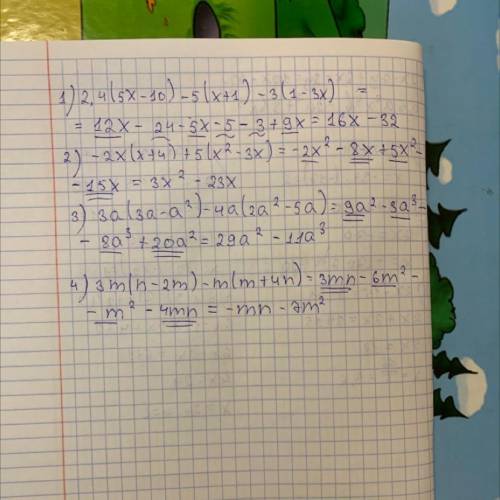 1) 2,4(5x-10) - 5(x+1) - 3(1-3x) =
= 12x - 24 - 5x - 5 - 3 + 9x = 16x - 32
2) -2x(x+4) + 5(x² - 3x) = -2x² - 8x + 5x² -
- 15x = 3x² - 23x
3) 3a(3a-a²) - 4a(2a² - 5a) = 9a² - 3a³ -
- 8a³ + 20a² = 29a² - 11a³
4) 3m(n-2m) - m(m+4n) = 3mn - 6m² -
- m² - 4mn = -mn - 7m²